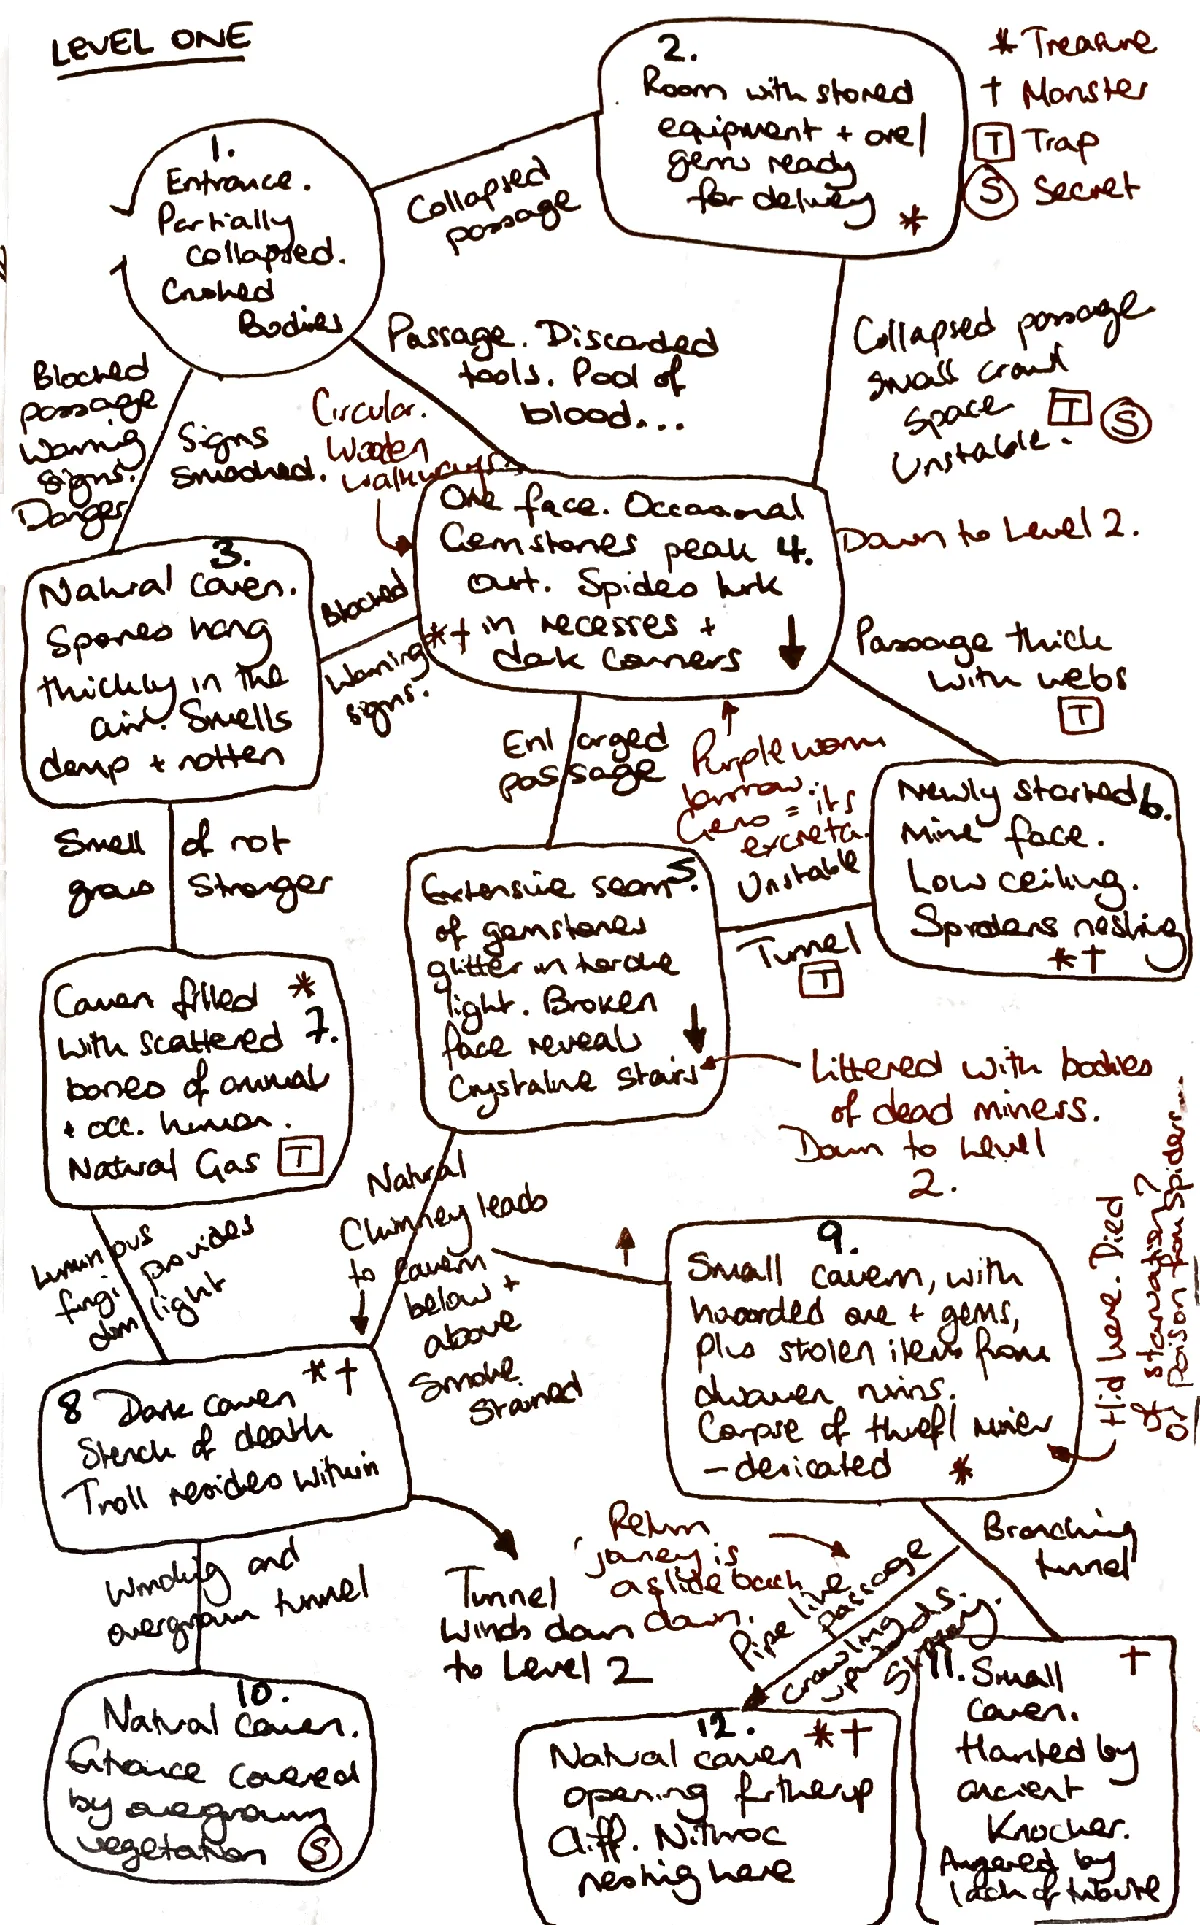 LEVEL ONE
* Treasure
† Monster
T Trap
S Secret
1.
Entrance.
Partially
collapsed.
Crushed
Bodies
Collapsed
passage
2.
Room with stored
equipment + ore/
gems ready
for delivery *
Passage. Discarded
tools. Pool of
blood...
Collapsed passage
small crawl
space T S
Unstable.
Blocked
passage
Warning
signs.
Danger
Signs
Smashed.
Circular.
Wooden
walkways.
3.
Natural Caven.
Spores hang
thickly in the
air. Smells
damp + rotten
Blocked
Warning
signs.
Ore face. Occasional
Gemstones peak 4.
out. Spiders lurk
*† in recesses +
dark corners
Down to Level 2.
Passage thick
with webs
T
Enlarged
passage
Purple worm
burrow.
Gems = its
excreta.
Unstable
Tunnel
T
Newly started 6.
Mine face.
Low ceiling.
Spiders nesting
*†
Smell of rot
grows Stronger
Extensive seam 5.
of gemstones
glitter in torche
light. Broken
face reveals
Crystaline Stairs
Littered with bodies
of dead miners.
Down to Level
2.
Caven filled *
with scattered 7.
bones of animal
+ occ. human.
Natural Gas T
Luminous
fungi provides
dim light
Natural
Chimney leads
to cavern
below +
above
Smoke
Stained
9.
Small cavern, with
hoorded ore + gems,
plus stolen items from
dwaven ruins.
Corpse of thief/miner
- desicated *
Hid here. Died
of starvation?
Or Poison from Spiders...
8 Dark caven *†
Stench of death
Troll resides within
Winding and
overgrown tunnel
Tunnel
Winds down
to Level 2
Return
journey is
a slide back
down.
Pipe like
passage
crawling
upwards.
Slippery.
Branching
tunnel
10.
Natural caven.
Entrance covered
by overgrown
vegetation S
12.
Natural caven *†
opening further up
Cliff. Nithroc
nesting here
11. Small †
caven.
Haunted by
ancient
Knocker.
Angered by
lack of tribute